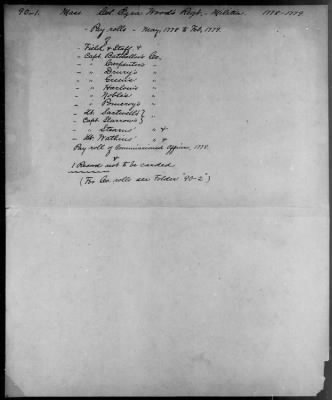 90-1. Mass. Col. Ezra Wood's Regt. - Militia. 1778-1779.
- Pay rolls - May, 1778 to Feb, 1779.
of
- Field & Staff &
- Capt. Batchellor's Co.
- " Carpenter's "
- " Drury's "
- " Greene's "
- " Harlow's "
- " Noble's "
- " Pomeroy's "
- Lt. Sartwell's } "
- Capt. Sparrow's }
- " Stearns' " &
- Lt. Watkins' " &
Pay roll of Commissioned Officers, 1778.
&
1 Record not to be carded
(For Co. rolls see Folder "90-2")